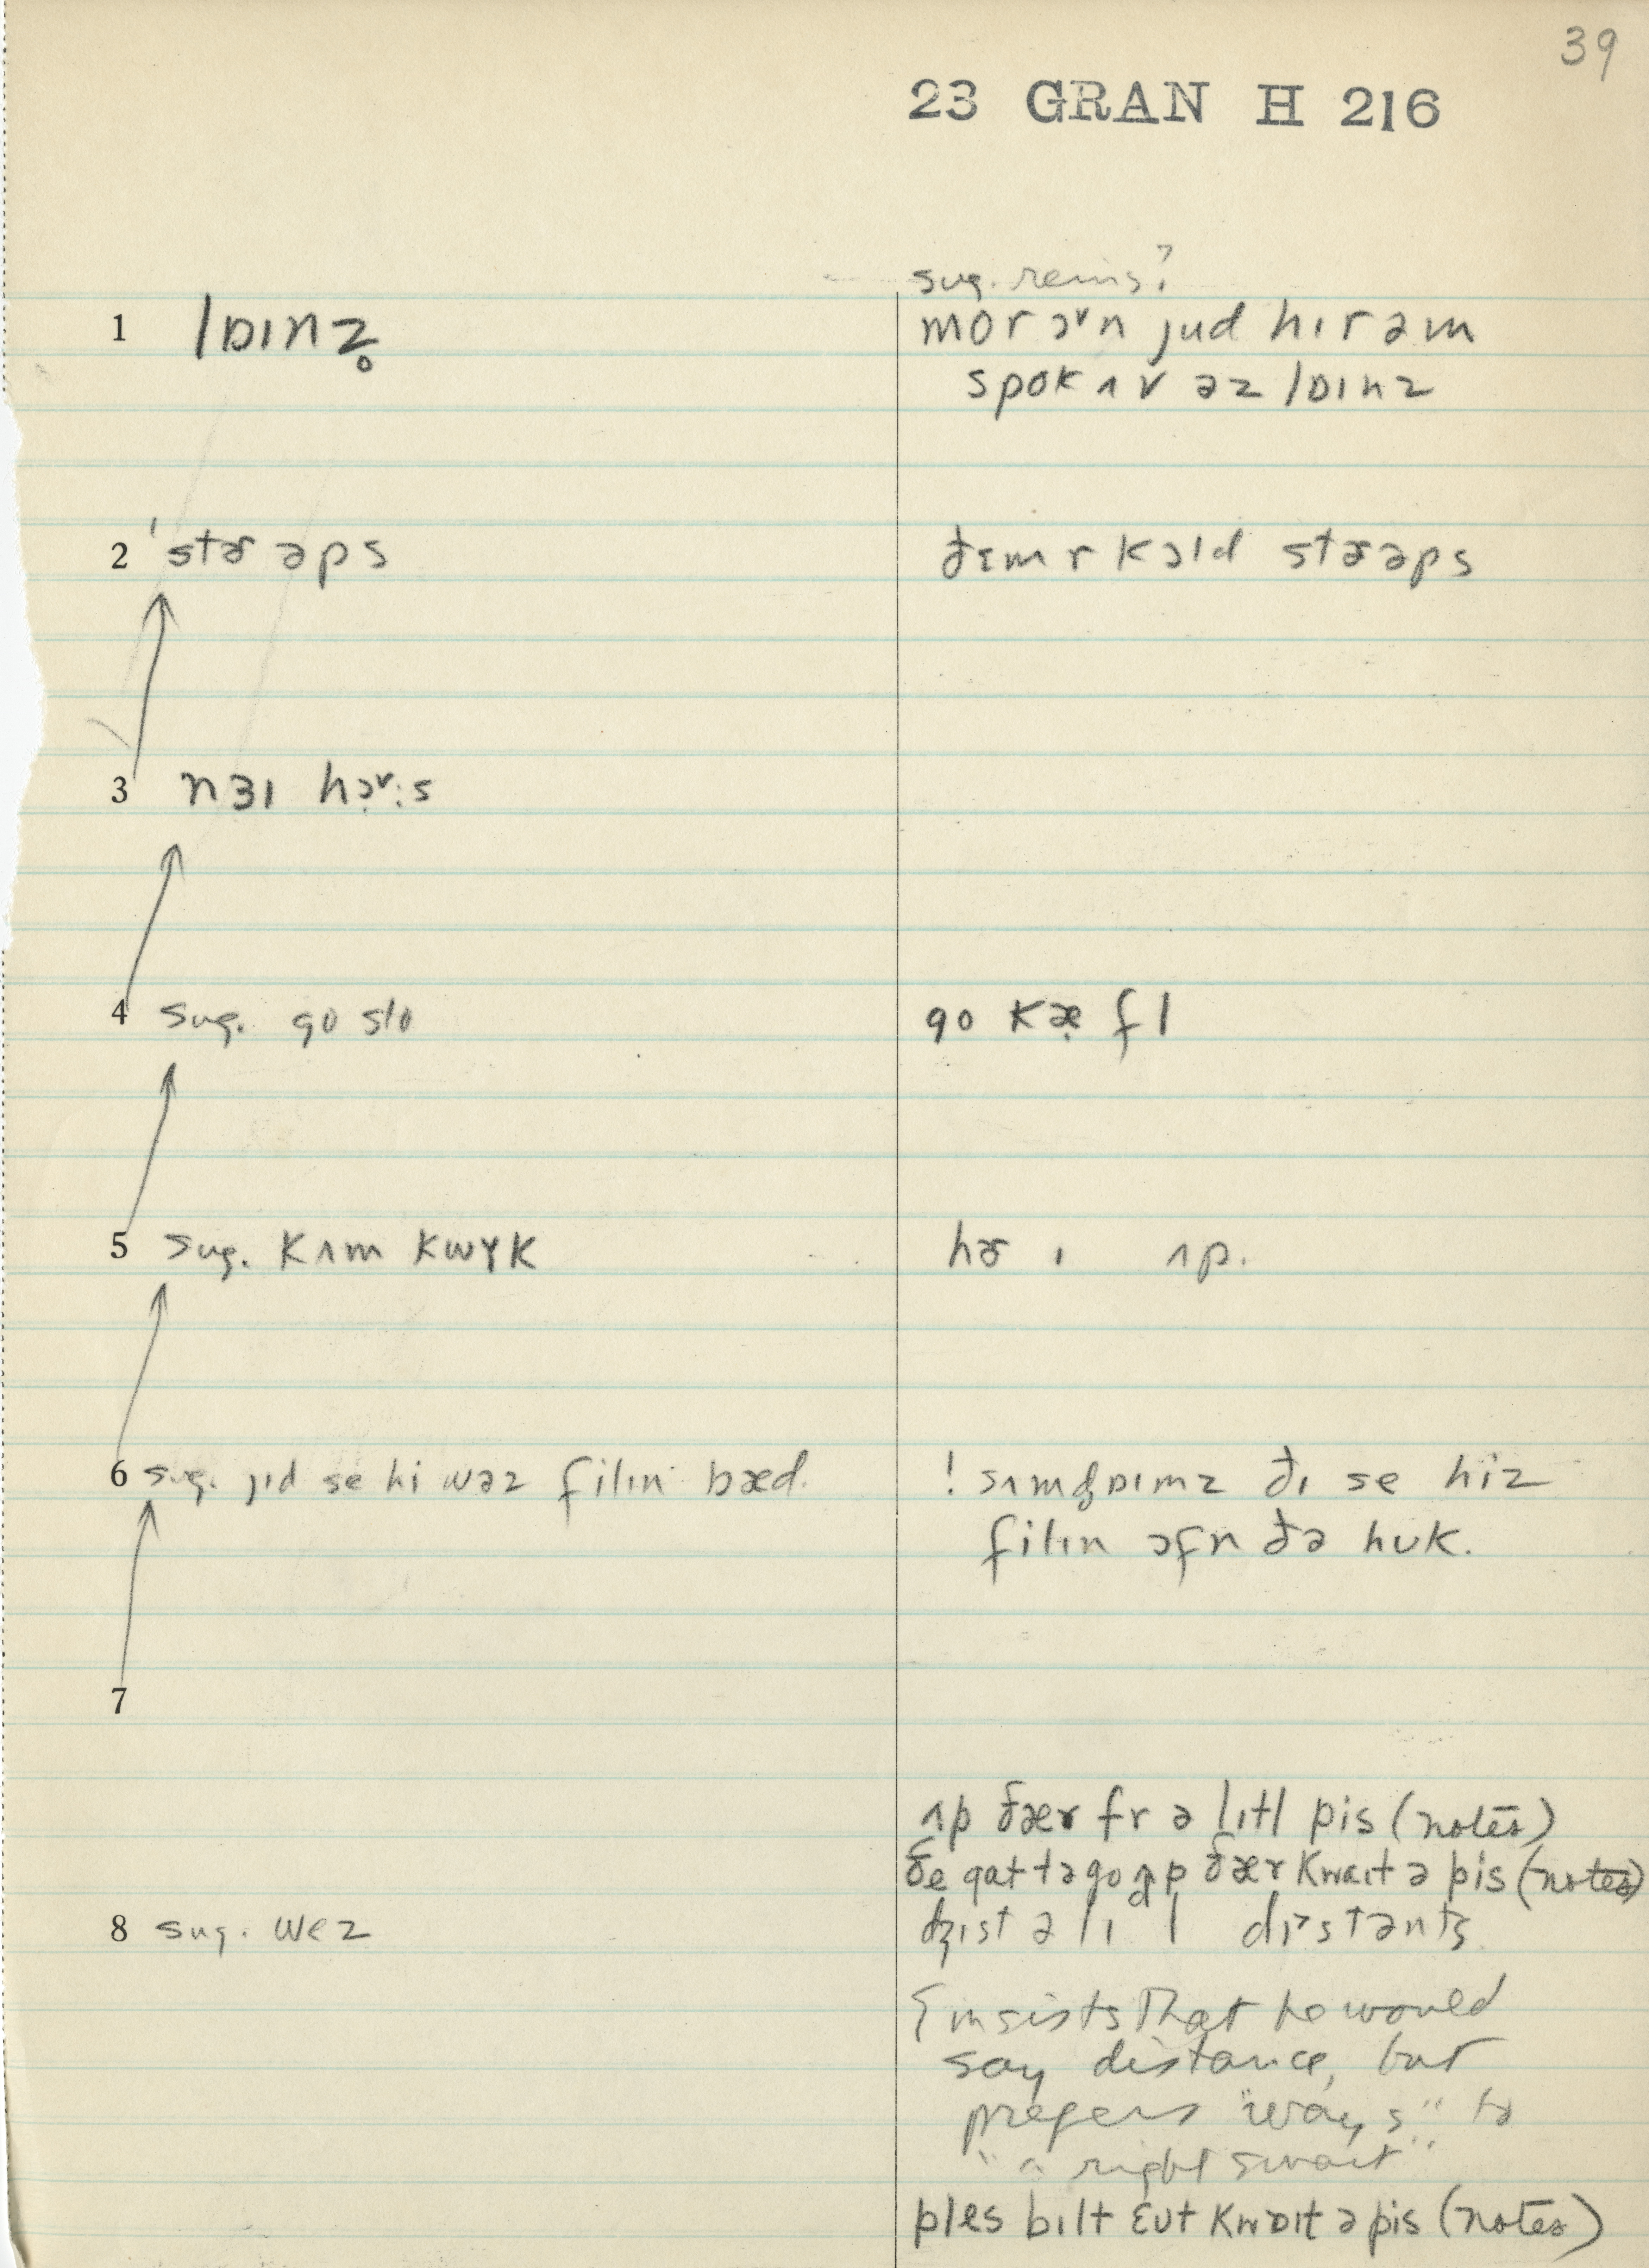 39
23 GRAN H 216
sug. reins?
1 lɒɪnz̥
mor ɔᵛn jud hɪrəm
spok ʌv əz lɒɪnz
2 ˈstɚəps
ðɛm r kɔld stɚəps
3 nɜɪ hɔ̣ᵛ:s
4 sug. go slo
go kæ̣fl
5 sug. kʌm kwɤk
hɚ ɪ ʌp.
6 sug. jɪd se hi wəz filɪn bæd.
! sʌm ɪmz ðɪ se hiz
filɪn ɔfn ðə huk.
7
ʌp ðær fr ə lɪtl pis (notes)
ðe gat tə go ʌp ðær kwaɪt ə pis (notes)
8 sug. wez
ist ə lɪdl dɪstənts
{ insists that he would
say distance, but
prefers "ways" to
"a right smart"
ples bɪlt ɛut kwɒɪt ə pis (notes)